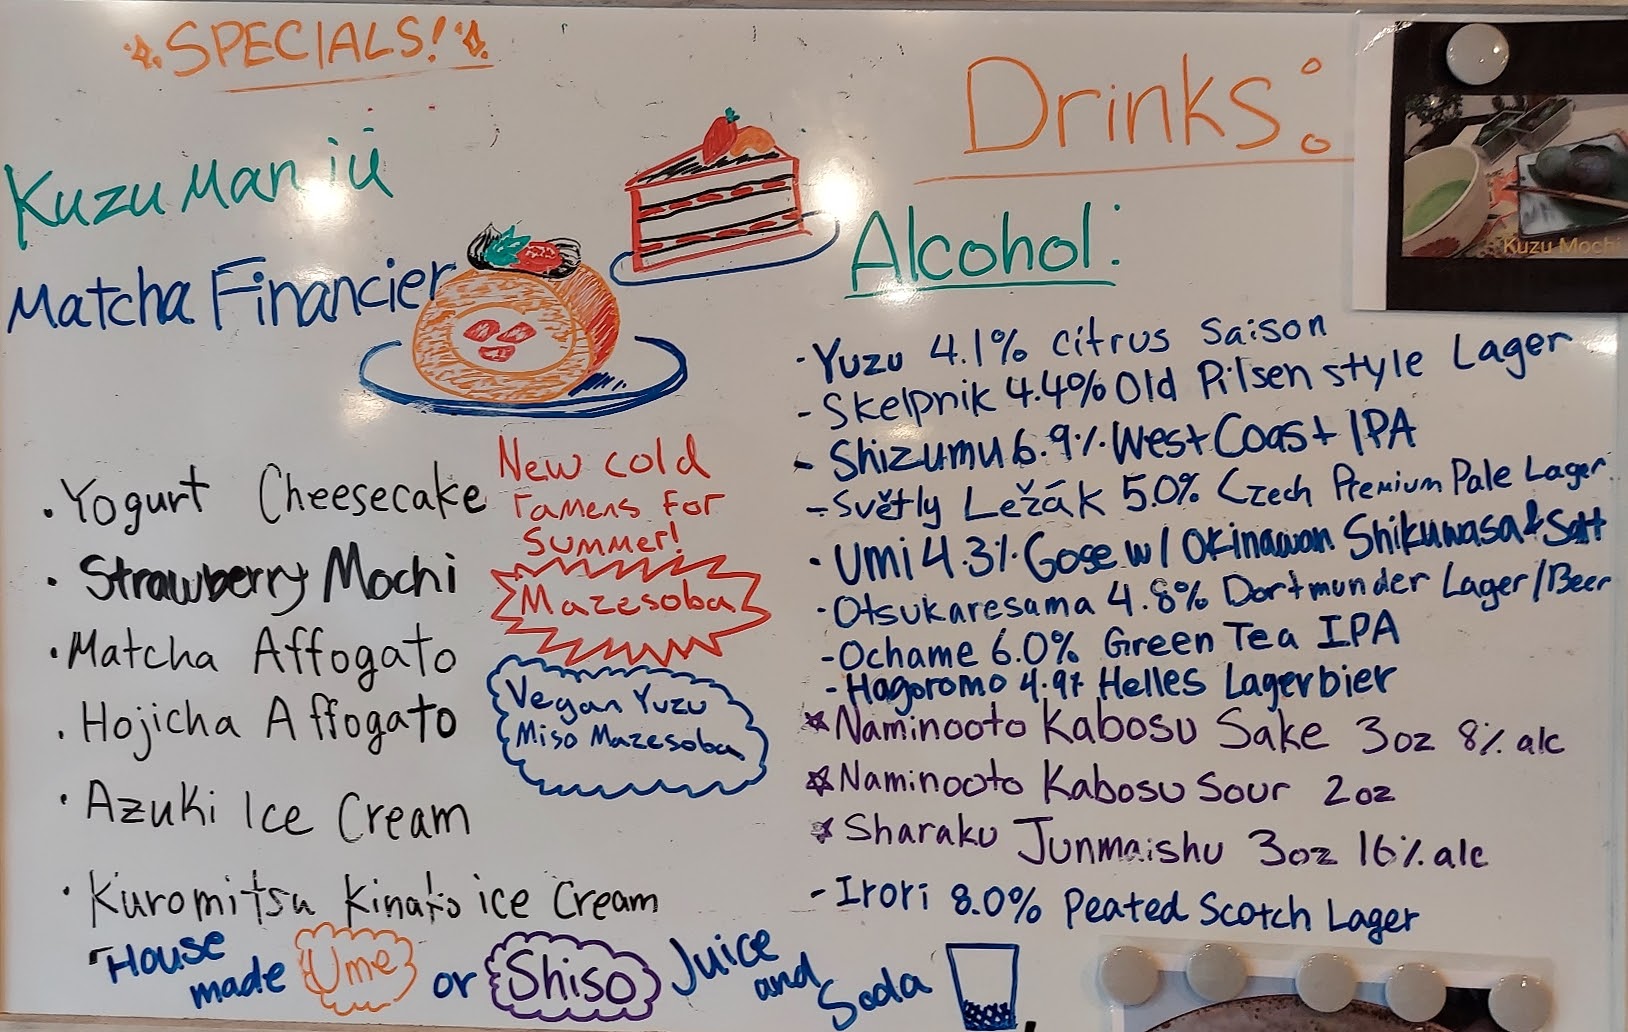 SPECIALS!
Kuzu Manjū
Matcha Financier
· Yogurt Cheesecake
· Strawberry Mochi
· Matcha Affogato
· Hojicha Affogato
· Azuki Ice Cream
· Kuromitsu Kinako ice Cream
New cold
ramens For
Summer!
Mazesoba
Vegan Yuzu
Miso Mazesoba
House
made Ume or Shiso Juice
and
Soda
Drinks:
Alcohol:
- Yuzu 4.1% citrus Saison
- Skelpnik 4.4% Old Pilsen style Lager
- Shizumu 6.9% West Coast IPA
- Světly Ležák 5.0% Czech Premium Pale Lager
· Umi 4.3% Gose w/ Okinawan Shikuwasa & Salt
· Otsukaresama 4.8% Dortmunder Lager/Beer
- Ochame 6.0% Green Tea IPA
- Hagoromo 4.9% Helles Lagerbier
☆ Naminooto Kabosu Sake 3oz 8% alc
☆ Naminooto Kabosu Sour 2oz
☆ Sharaku Junmaishu 3oz 16% alc
- Irori 8.0% Peated Scotch Lager
Kuzu Mochi